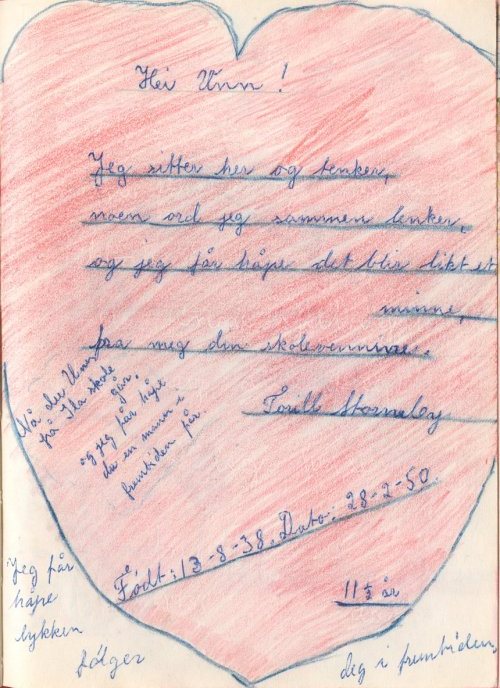 Hei Unn!
Jeg sitter her og tenker,
noen ord jeg sammen lenker,
og jeg får håpe det blir likt et
minne,
fra meg din skolevenninne.
Torill
Nå du Unn
på Ila skole
går,
og jeg får håpe
du en mann i
fremtiden får.
Født: 13-8-38. Dato: 28-2-50.
11 ½ år
Jeg får
håpe
lykken
følger
deg i fremtiden.